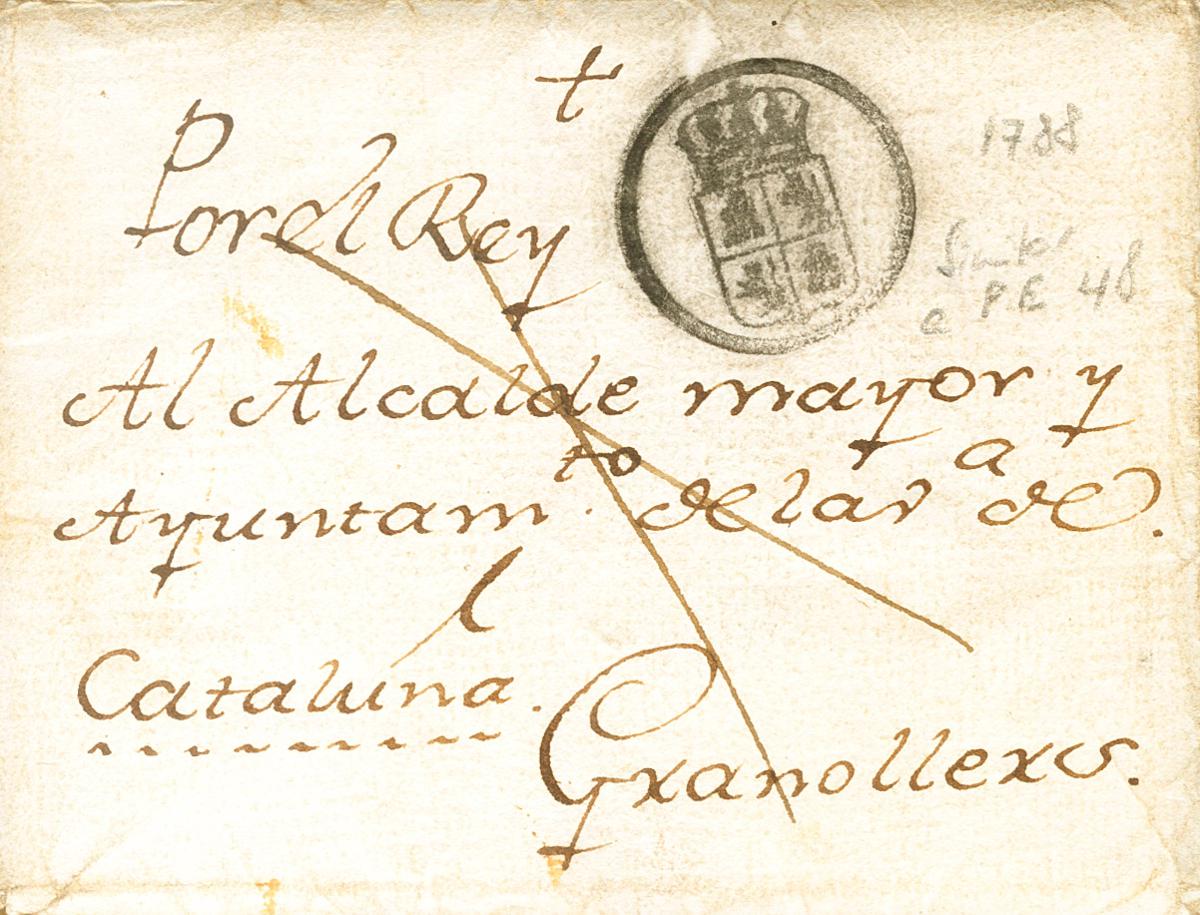 +
Por el Rey
1788
Similar
a P.E 48
Al Alcalde mayor y
Ayuntam.to de la v.a de
Cataluna.
Granollers.